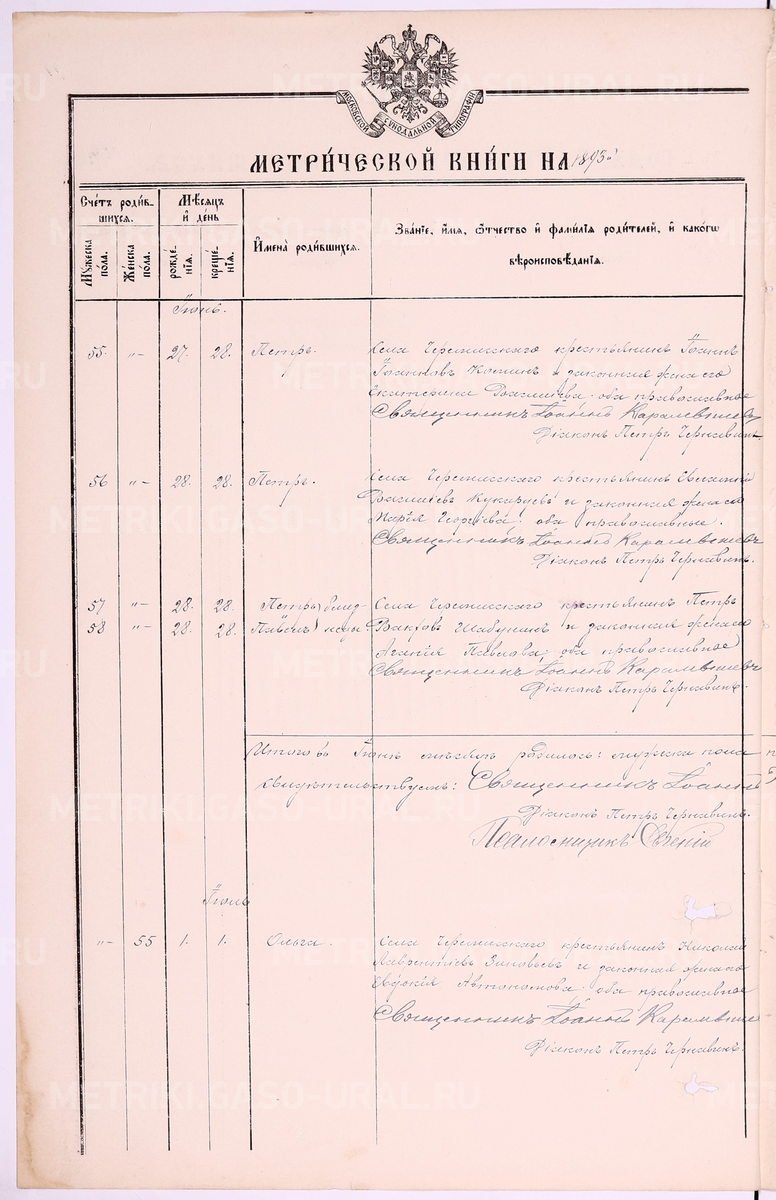 МОСКОВСКОЙ СѴНОДАЛЬНОЙ ТИПОГРАФІИ
МЕТРИ́ЧЕСКОЙ КНИ́ГИ НА 1895
Сче́тъ роди́в-
шихся.
Мѣ́сяцъ
и҆ де́нь
Му́жеска
по́ла.
Же́нска
по́ла.
рожде́-
нїя.
креще́-
нїя.
И҆мена̀ роди́вшихся.
Зва́нїе, и҆́мя, ѻ҆́тчество и҆ фами́лїя роди́телей, и҆ како́гѡ
вѣроисповѣ́данїя.
Іюнь.
55. "– 27. 28. Петръ. Села Черемисскаго крестьянинъ Іоаннъ
Іоанновъ и законная жена его
Екатерина оба православные
Священникъ Іоаннъ Карамышевъ
Діаконъ Петръ Чернавинъ
56 "– 28. 28. Петръ. Села Черемисскаго крестьянинъ
Василіевъ Кукарцевъ и законная жена его
Марія Георгіева оба православные.
Священникъ Іоаннъ Карамышевъ
Діаконъ Петръ Чернавинъ.
57 "– 28. 28. Петръ близ- Села Черемисскаго крестьянинъ Петръ
58 "– 28. 28. Павелъ нецы Шабунинъ и законная жена его
Агапія Павлова, оба православные
Священникъ Іоаннъ Карамышевъ
Діаконъ Петръ Чернавинъ.
Итого въ Іюнѣ мѣсяцѣ родилось: мужска пола
свидѣтельствуемъ: Священникъ Іоаннъ
Діаконъ Петръ Чернавинъ.
Псаломщикъ Евгеній
Іюль
"– 55 1. 1. Ольга. Села Черемисскаго крестьянинъ Николай
Лаврентіевъ Зиновьевъ и законная жена его
Евдокія Автономова оба православные
Священникъ Іоаннъ Карамыше
Діаконъ Петръ Чернавинъ.
METRIKI.GASO-URAL.RU